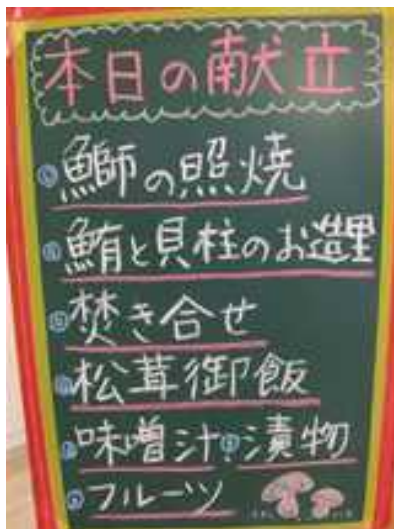 本日の献立
鰤の照焼
鮪と貝柱のお造里
焚き合せ
松茸御飯
味噌汁 漬物
フルーツ